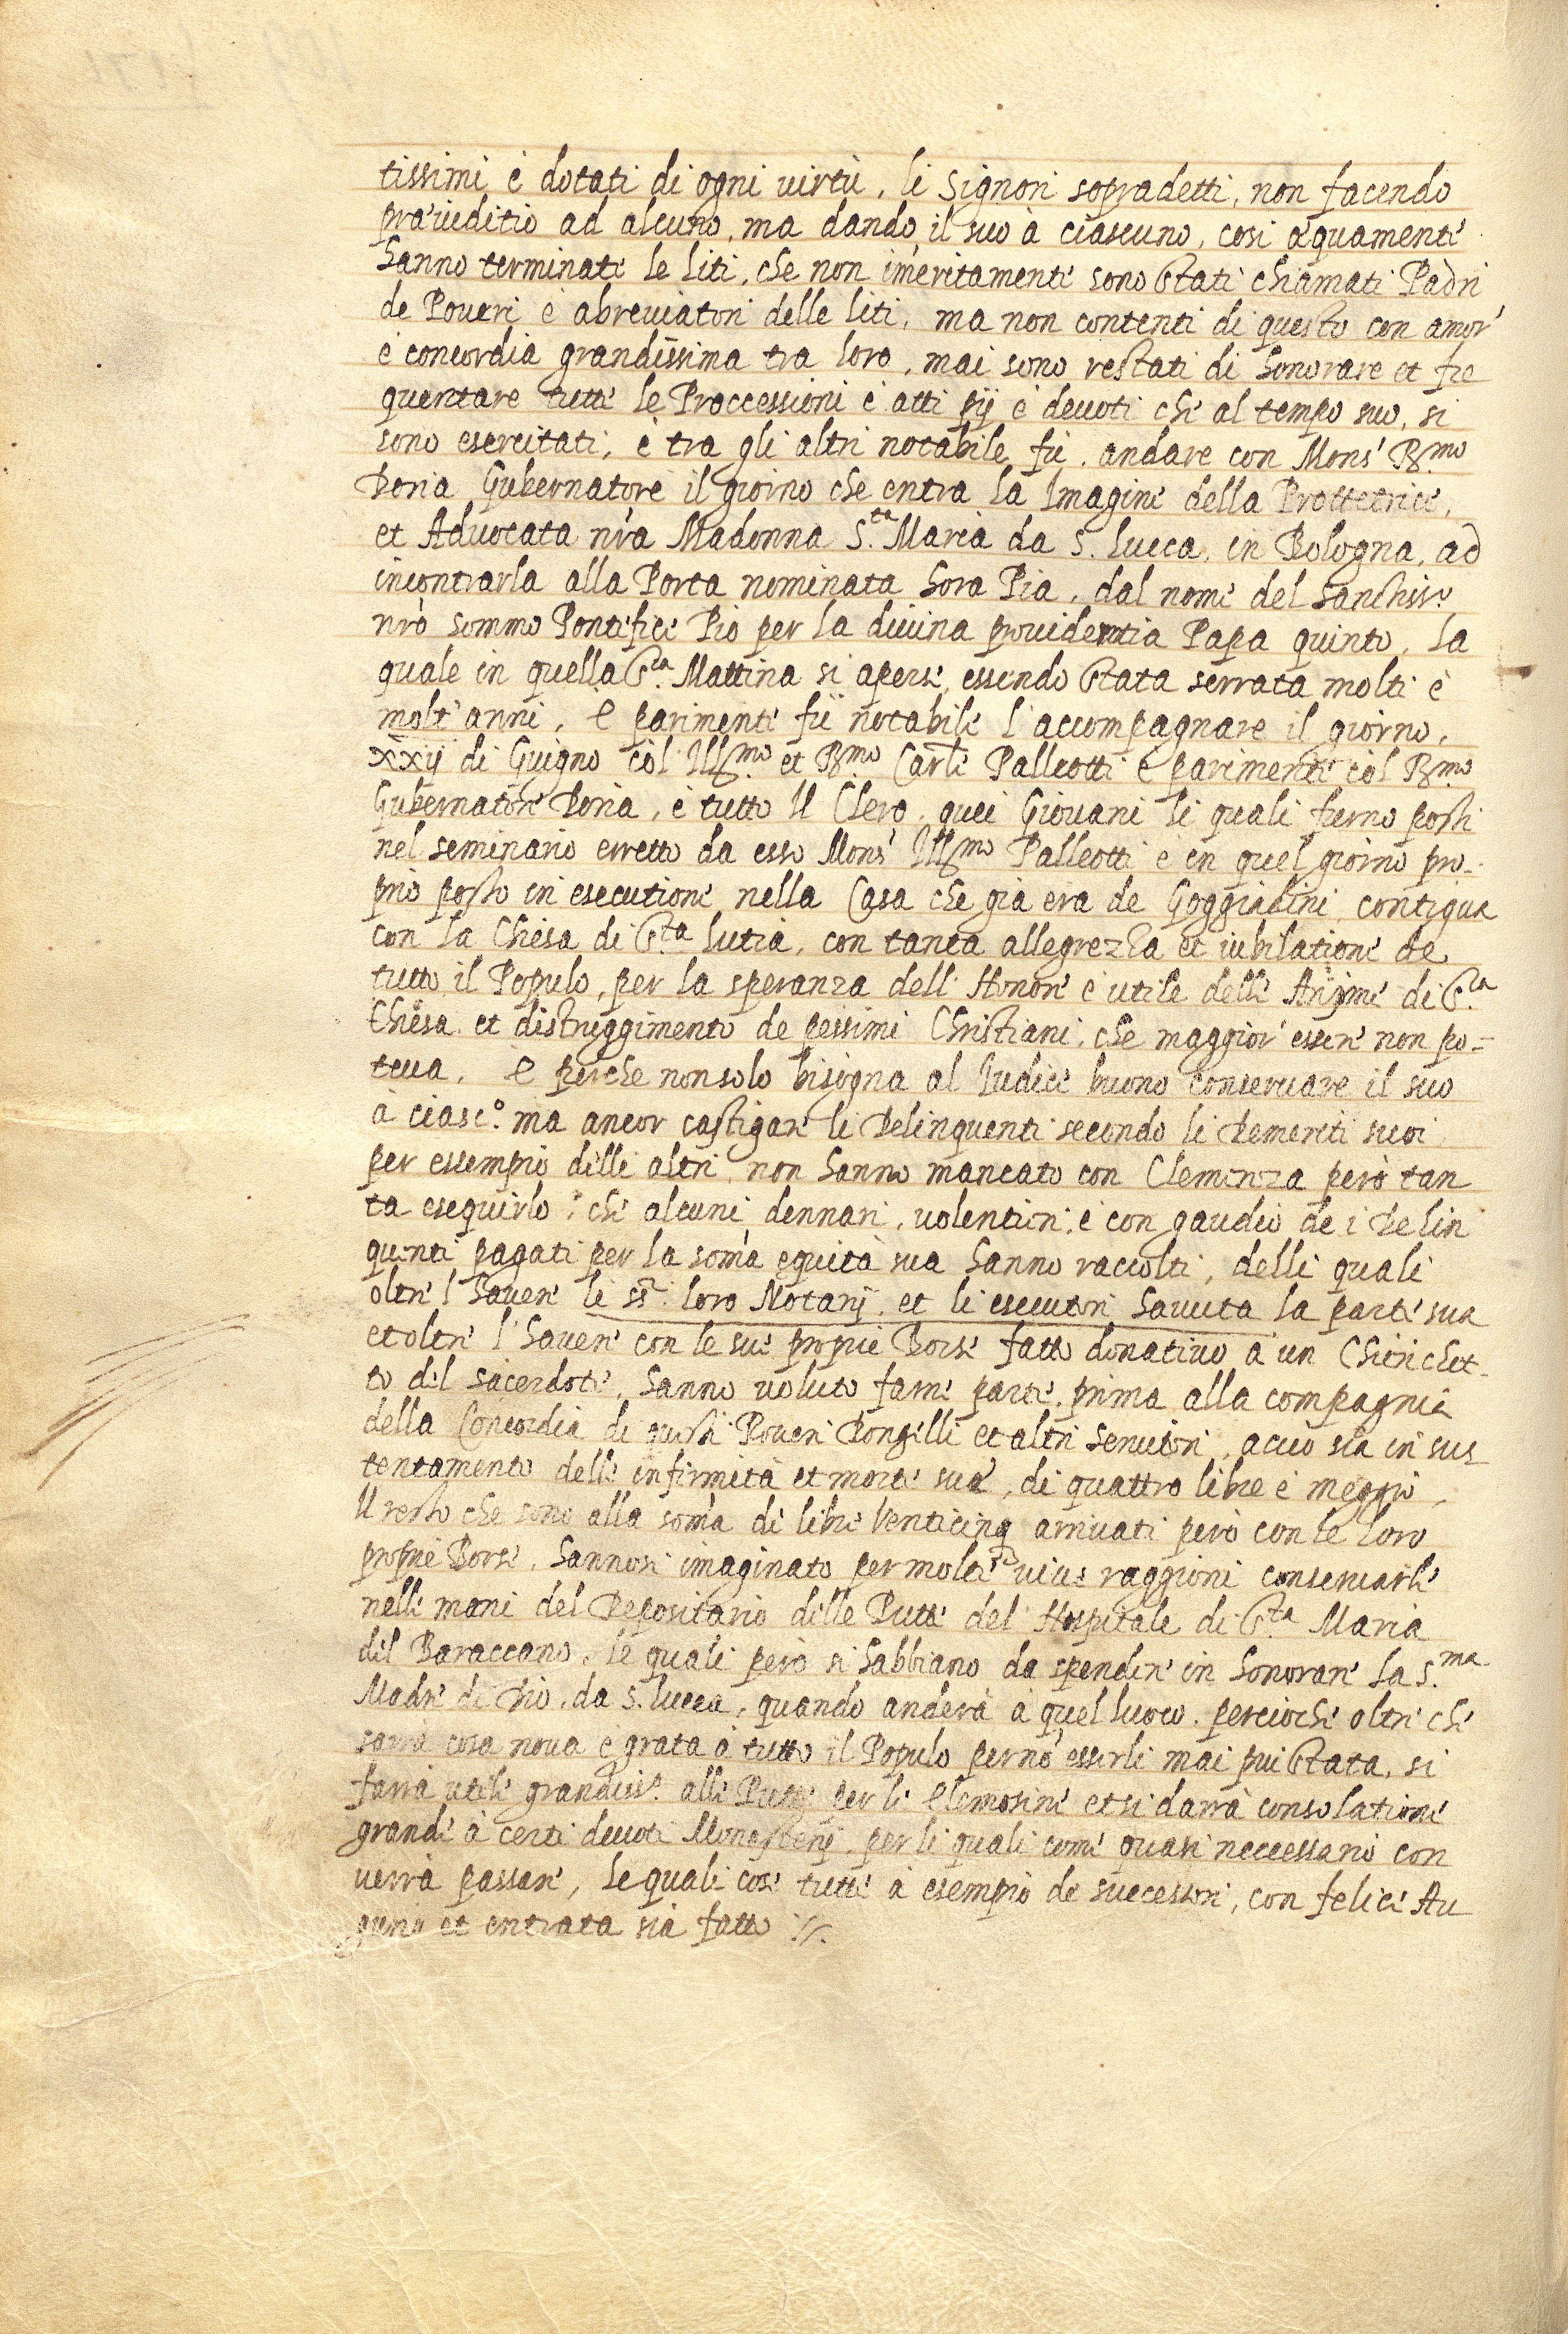 tissimi è dotati di ogni uirtù, li Signori sopradetti, non facendo
præiuditio ad alcuno, ma dando il suo à ciascuno, cosi æquamente
hanno terminate le liti, che non im̃eritamente sono stati chiamati Padri
de Poueri è abreuiatori delle liti, ma non contenti di questo con amor'
è concordia grandissima tra loro, mai sono restati di honorare et fre
quentare tutte le Proccessioni è atti pij è deuoti che al tempo suo, si
sono esercitati, è tra gli altri notabile fù, andare con Mons.' R.mo
Doria Gubernatore il giorno che entra la Imagine della Prottetrice,
et Aduocata nr̃a Madonna S.ta Maria da S. Lucca, in Bologna, ad
incontrarla alla Porta nominata hora Pia, dal nome del Sanctiss.o
nr̃o sommo Pontefice Pio per la diuina prouidentia Papa quinto, la
quale in quella S.ta Mattina si aperse, essendo stata serrata molti è
molt' anni, è parimente fù notabile l'accompagnare il giorno,
xxij di Guigno col Ill.mo et R.mo Car.le Palleotti è parimente col R.mo
Gubernatore Doria, è tutto Il Clero, quei Giouani li quali furno posti
nel seminario erretto da esso Mons.' Ill.mo Palleotti è in quel giorno pro-
prio posto in esecutione nella Casa che già era de Goggiadini contigua
con la Chiesa di S.ta Lutia, con tanta allegrezza et iubilatione de
tutto il Populo, per la speranza dell' Honore è utile delle Anime di S.ta
Chiesa et distruggimento de pessimi Christiani, che maggior' essere non po=
teua, è perche non solo bisogna al Iudice buono conseruare il suo
à ciasc.o ma ancor castigare li Delinquenti secondo li demeriti suoi
per essempio delli altri, non hanno mancato con Clemenza però tan
ta eseguirlo, che alcuni dennari, uolentieri, è con gaudio de i Delin
quenti pagati per la som̃a equità sua hanno raccolti, delli quali
oltre l'hauere li ss.ri loro Notarij, et li esecutori hauuta la parte sua
et oltre l'hauere con le sue proprie Borse fatto donatiuo à un Chierichet-
to del sacerdote, hanno uoluto farne parte, prima alla compagnia
della Concordia di questi Poueri Donzelli et altri Seruitori, acciò sia in sus_
tentamento delle infirmità et morte sua, di quattro libre è meggio,
Il resto che sono alla som̃a de libre Venticinq arriuati però con le loro
proprie Borse, hannosi imaginato per molte uiue raggioni conseruarle
nelle mani del Depositario delle Putte del Hospitale di S.ta Maria
dil Baraccano, le quali però si habbiano da spendere in honorare la S.ma
Madre di Dio, da S. Lucca, quando anderà à quel luoco, percioche oltre che
sarrà cosa noua è grata à tutto il Populo per nõ esserli mai pui stata, si
farrà utile grandiss.o alle Putte per le elemosine et si darrà consolatione
grande à certi deuoti Monasterij, per li quali come quasi neccessario con
uerrà passare, le quali cose tutte à esempio de successori, con felice Au
gurio et entrata sia fatto